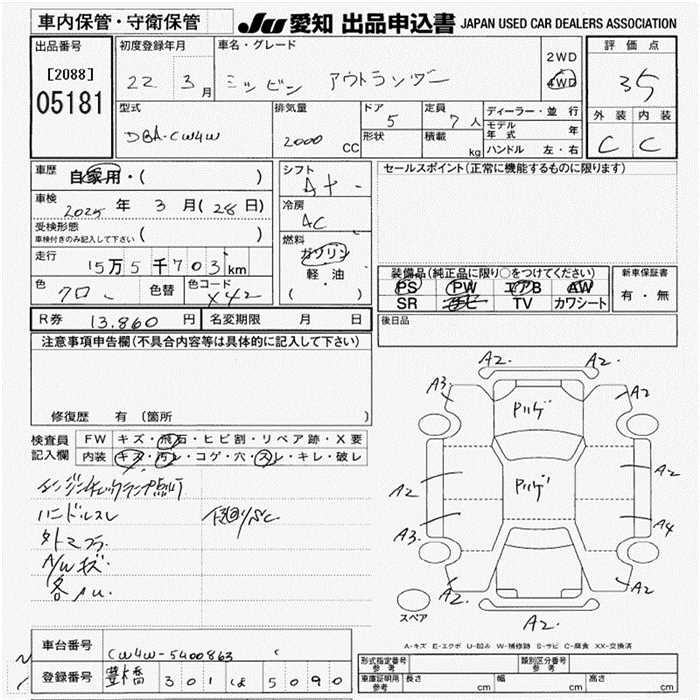 車内保管・守衛保管
JU 愛知 出品申込書 JAPAN USED CAR DEALERS ASSOCIATION
出品番号
[2088]
05181
初度登録年月
22 3月
車名・グレード
ミツビシ アウトランダー
2WD
4WD
評価点
3.5
外装 内装
C C
型式
DBA-CW4W
排気量
2000 CC
ドア
5
形状
定員
7 人
積載
kg
ディーラー・並行
モデル年式 年
ハンドル 左・右
車歴
自家用・( )
車検
2025 年 3 月(28日)
受検形態
車検付きのみ記入して下さい ( )
走行
15万5千703km
色
クロ
色替
色コード
X42
シフト
A
冷房
AC
燃料
ガソリン
軽油
( ・ )
セールスポイント(正常に機能するものに限ります)
装備品(純正品に限り○をつけてください)
PS PW エアB AW
SR ナビ TV カワシート
新車保証書
有・無
後日品
R券 13.860 円
名変期限 月 日
注意事項申告欄(不具合内容等は具体的に記入して下さい)
修復歴 有 (箇所 )
検査員
記入欄
FW キズ・飛石・ヒビ割・リペア跡・X要
内装 キズ・汚レ・コゲ・穴・スレ・キレ・破レ
エンジンチェックランプ点灯
ハンドルスレ
下回りSC
外ミラー
A/Wキズ
各AU
A2
A2
A3
A2
Pハゲ
Pハゲ
A2
A2
A3
A4
A2
A2
A2
スペア
A-キズ E-エクボ U-凹み W-補修跡 S-サビ C-腐食 XX-交換済
車台番号
CW4W-5400863
登録番号
豊橋 301 は 5090
形式指定番号
参考
類別区分番号
参考
車庫証明用
参考
長さ cm
幅 cm
高さ cm